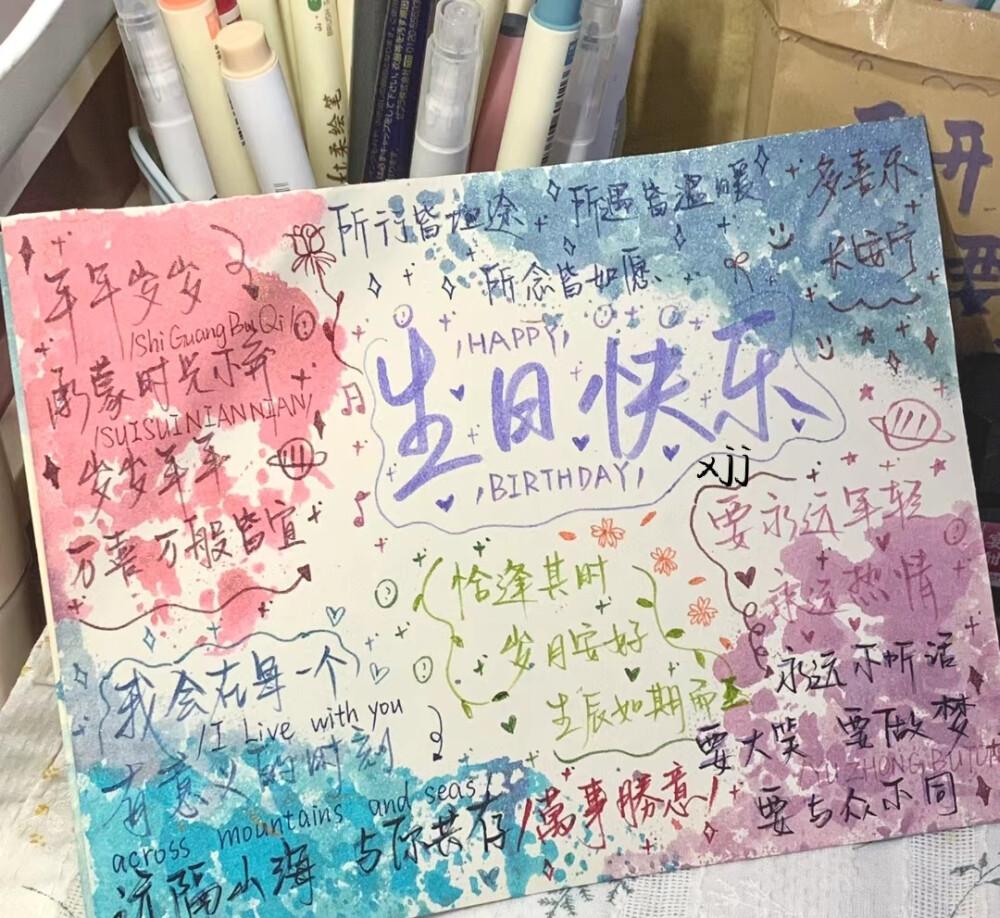 所行皆坦途 所遇皆温暖
所念皆如愿
多喜乐
长安宁
年年岁岁
/Shi Guang Bu Qi/
承蒙时光不弃
/SUISUINIANNIAN/
岁岁年年
万喜万般皆宜
HAPPY
生日快乐
BIRTHDAY
xjj
恰逢其时
岁月安好
生辰如期而至
要永远年轻
永远热情
永远不听话
要大笑 要做梦
/YU ZHONG BUTONG
要与众不同
我会在每一个
/I Live with you
有意义的时刻
across mountains and seas/
远隔山海 与你共存
/萬事勝意/
柔绘笔
开